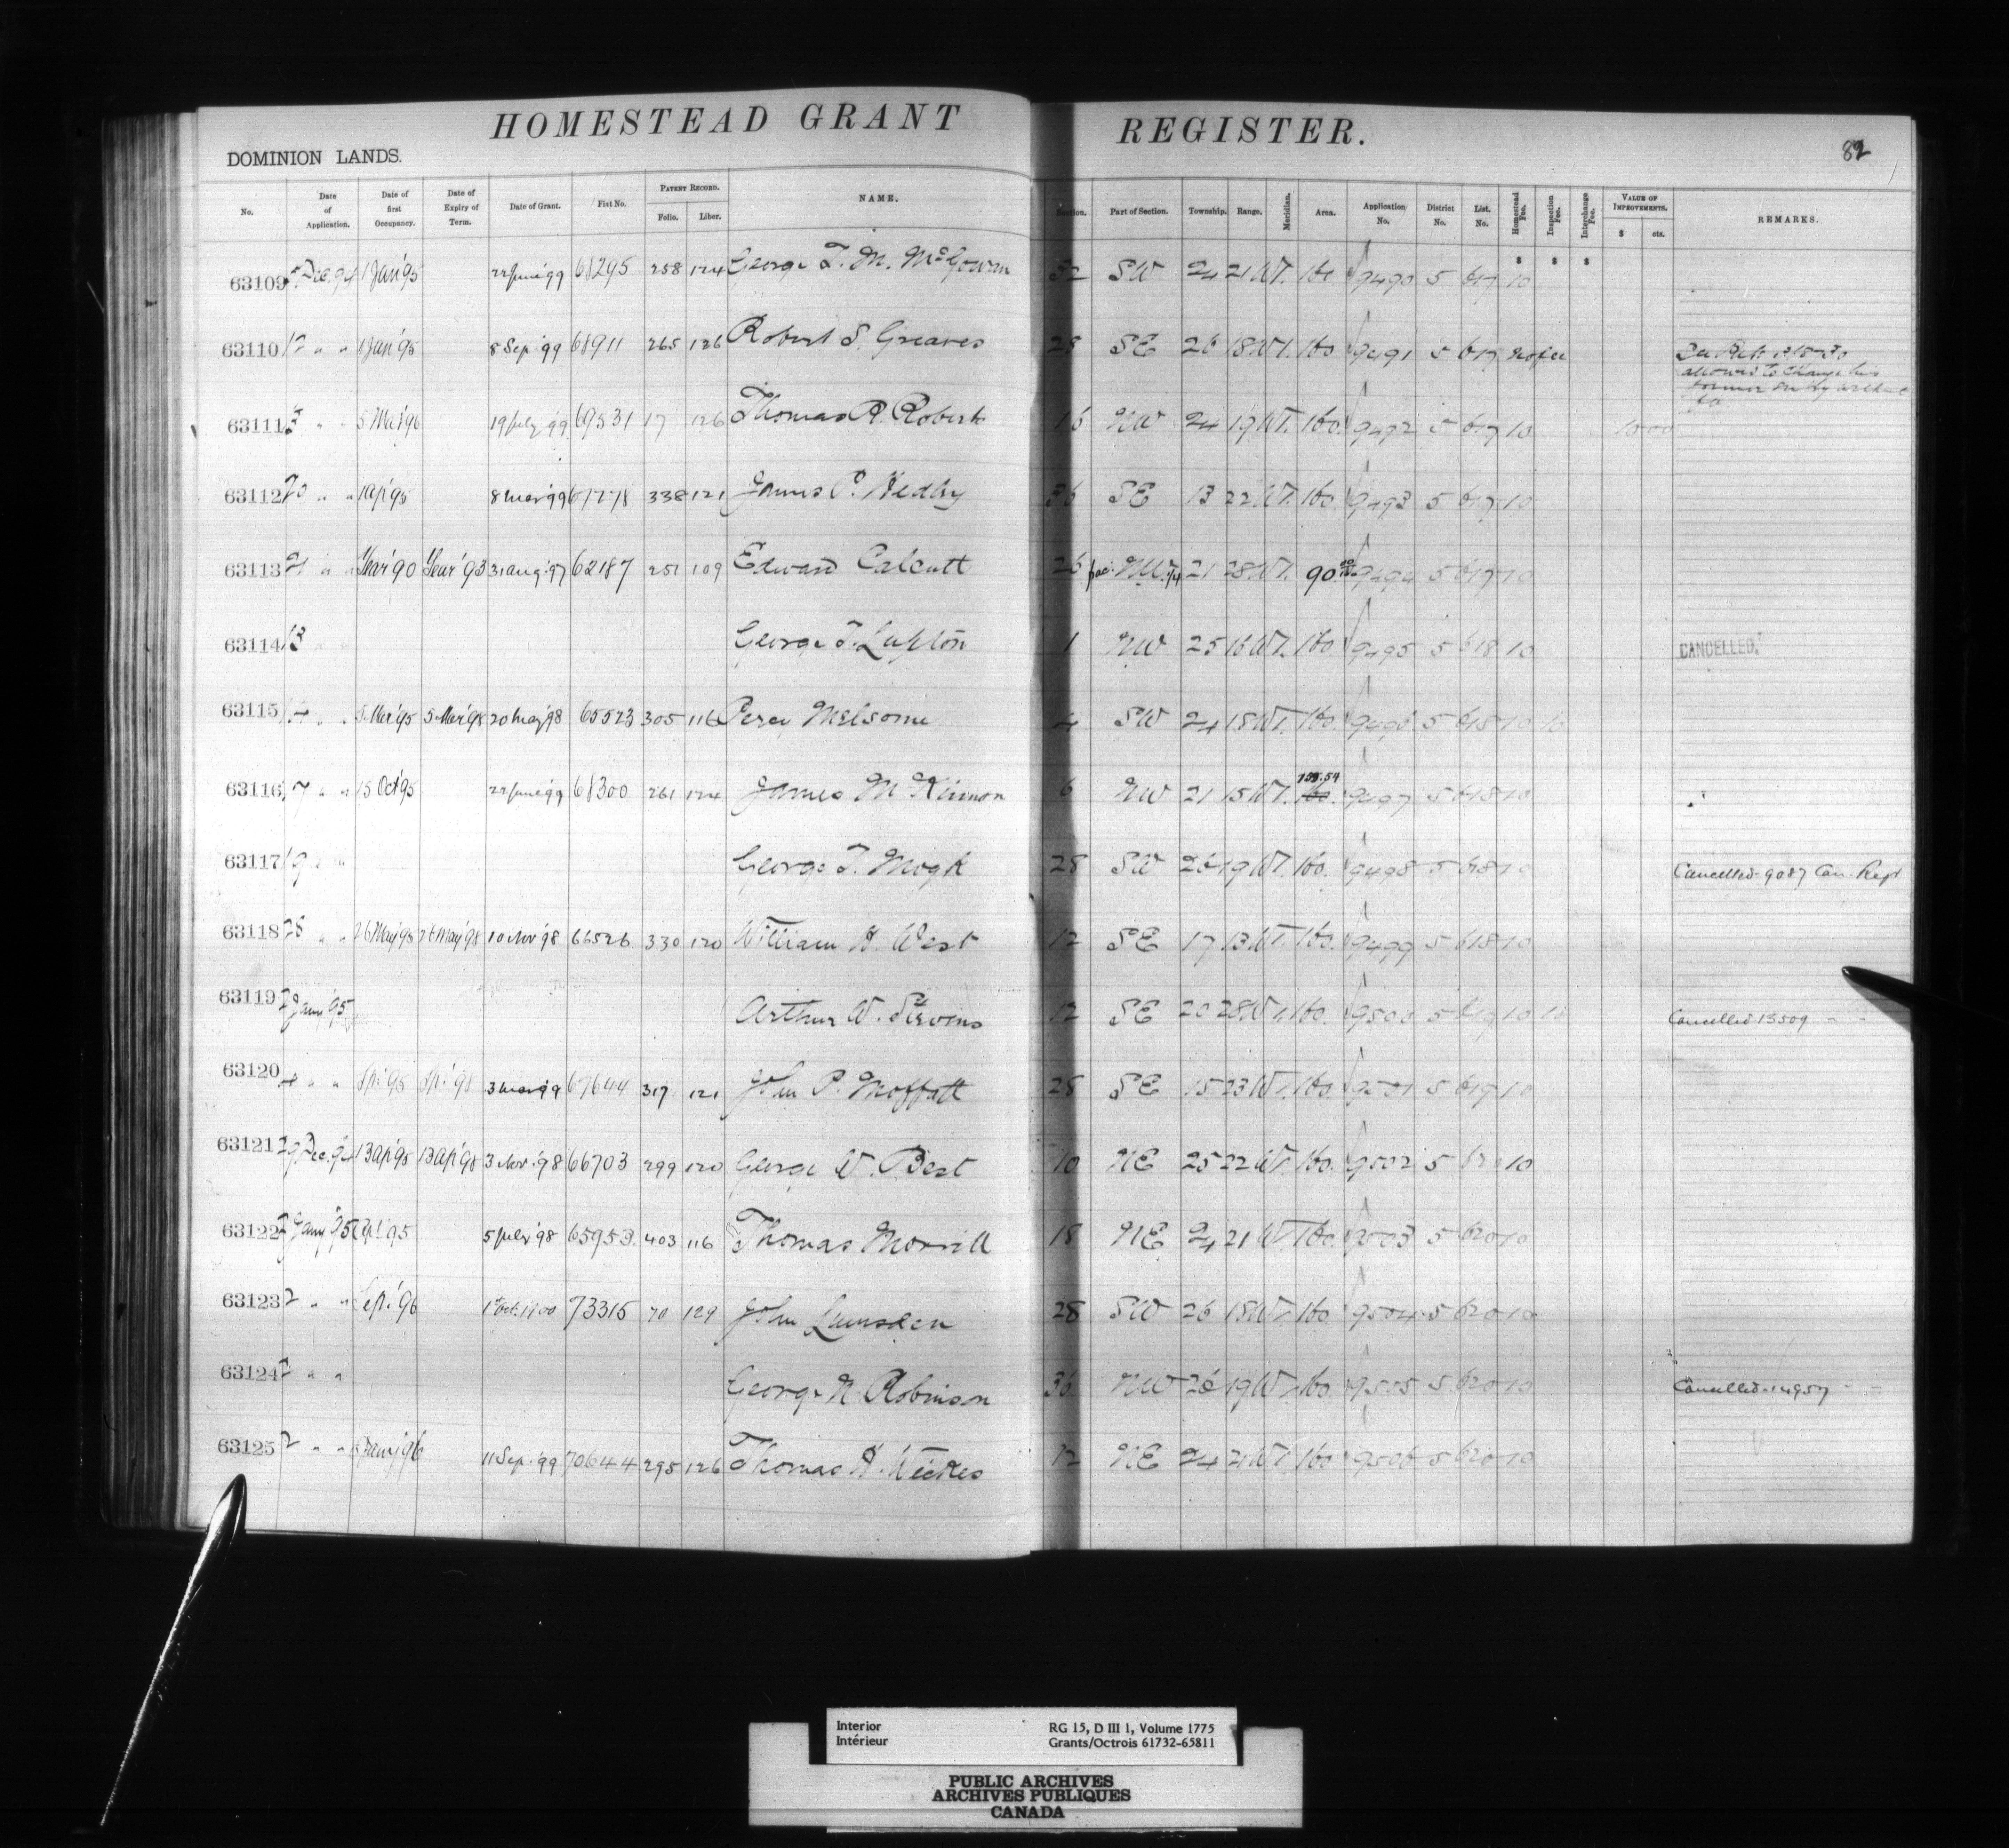 HOMESTEAD GRANT REGISTER.
DOMINION LANDS.
89
No. Date of Application. Date of first Occupancy. Date of Expiry of Term. Date of Grant. Fist No. PATENT RECORD. Folio. Liber. NAME. Section. Part of Section. Township. Range. Meridian. Area. Application No. District No. List. No. Homestead Fee. Inspection Fee. Interchange Fee. VALUE OF IMPROVEMENTS. $ cts. REMARKS.
$ $ $
63109 Dec. 94 1 Jan'95 22 June'99 68295 258 124 George T. M. McGowan 32 SW 24 21 W1. 160 9490 5 617 10
63110 12 " " 1 Jan'95 8 Sep'99 68911 265 126 Robert S. Greaves 28 SE 26 18 W1. 160 9491 5 617 no fee
allowed to change his
former entry without
fee
63111 " " 5 Mar'96 19 July'99 69531 17 126 Thomas R. Roberts 16 NW 24 19 W1. 160. 9492 5 617 10
63112 20 " " 1 Ap'95 8 Mar'99 338 121 James P. Hedley 36 SE 13 22 W1. 160. 9493 5 617 10
63113 21 " " Year'90 Year'93 31 Aug'97 62187 251 109 Edward Calcutt 26 frac. NW 1/4 21 28 W1. 90 9494 5 617 10
63114 13 " " George T. Lupton 1 NW 25 16 W1. 160. 9495 5 618 10 CANCELLED.
63115 14 " " 5 Mar'95 5 Mar'98 20 May'98 65523 305 116 Percy Melsome 4 SW 24 18 W1. 160. 9496 5 618 10 10
63116 17 " " 15 Oct'95 22 June'99 68300 261 124 James McKinnon 6 NW 21 15 W1. 159.54 160. 9497 5 618 10
63117 19 " " George T. Mogk 28 SW 26 19 W1. 160. 9498 5 618 10 Cancelled 9087 Can. Regt
63118 28 " " 26 May'95 26 May'98 10 Nov'98 66526 330 120 William H. West 12 SE 17 13 W1. 160. 9499 5 618 10
63119 2 Jany'95 Arthur W. Stevens 12 SE 20 28 W1. 160. 9500 5 619 10 10 Cancelled 13509 " "
63120 4 " " Sp.'95 Sp.'98 3 Mar'99 67644 317 121 John P. Moffatt 28 SE 15 23 W1. 160. 9501 5 619 10
63121 29 Dec.'94 13 Ap'95 13 Ap'98 3 Nov.'98 66703 299 120 George W. Best 10 NE 25 22 W1. 160. 9502 5 620 10
63122 2 Jany'95 5 July'98 65953 403 116 Thomas Morrill 18 NE 24 21 W1. 160. 9503 5 620 10
63123 2 " " Sept.'96 1st Oct. 1900 73315 70 129 John Lumsden 28 SW 26 18 W1. 160. 9504 5 620 10
63124 2 " " George N. Robinson 36 NW 26 19 W1. 160. 9505 5 620 10 Cancelled 14957 " "
63125 2 " " Jany'96 11 Sep.'99 70644 295 126 Thomas H. Weekes 12 NE 24 21 W1. 160 9506 5 620 10
Interior RG 15, D III 1, Volume 1775
Intérieur Grants/Octrois 61732-65811
PUBLIC ARCHIVES
ARCHIVES PUBLIQUES
CANADA